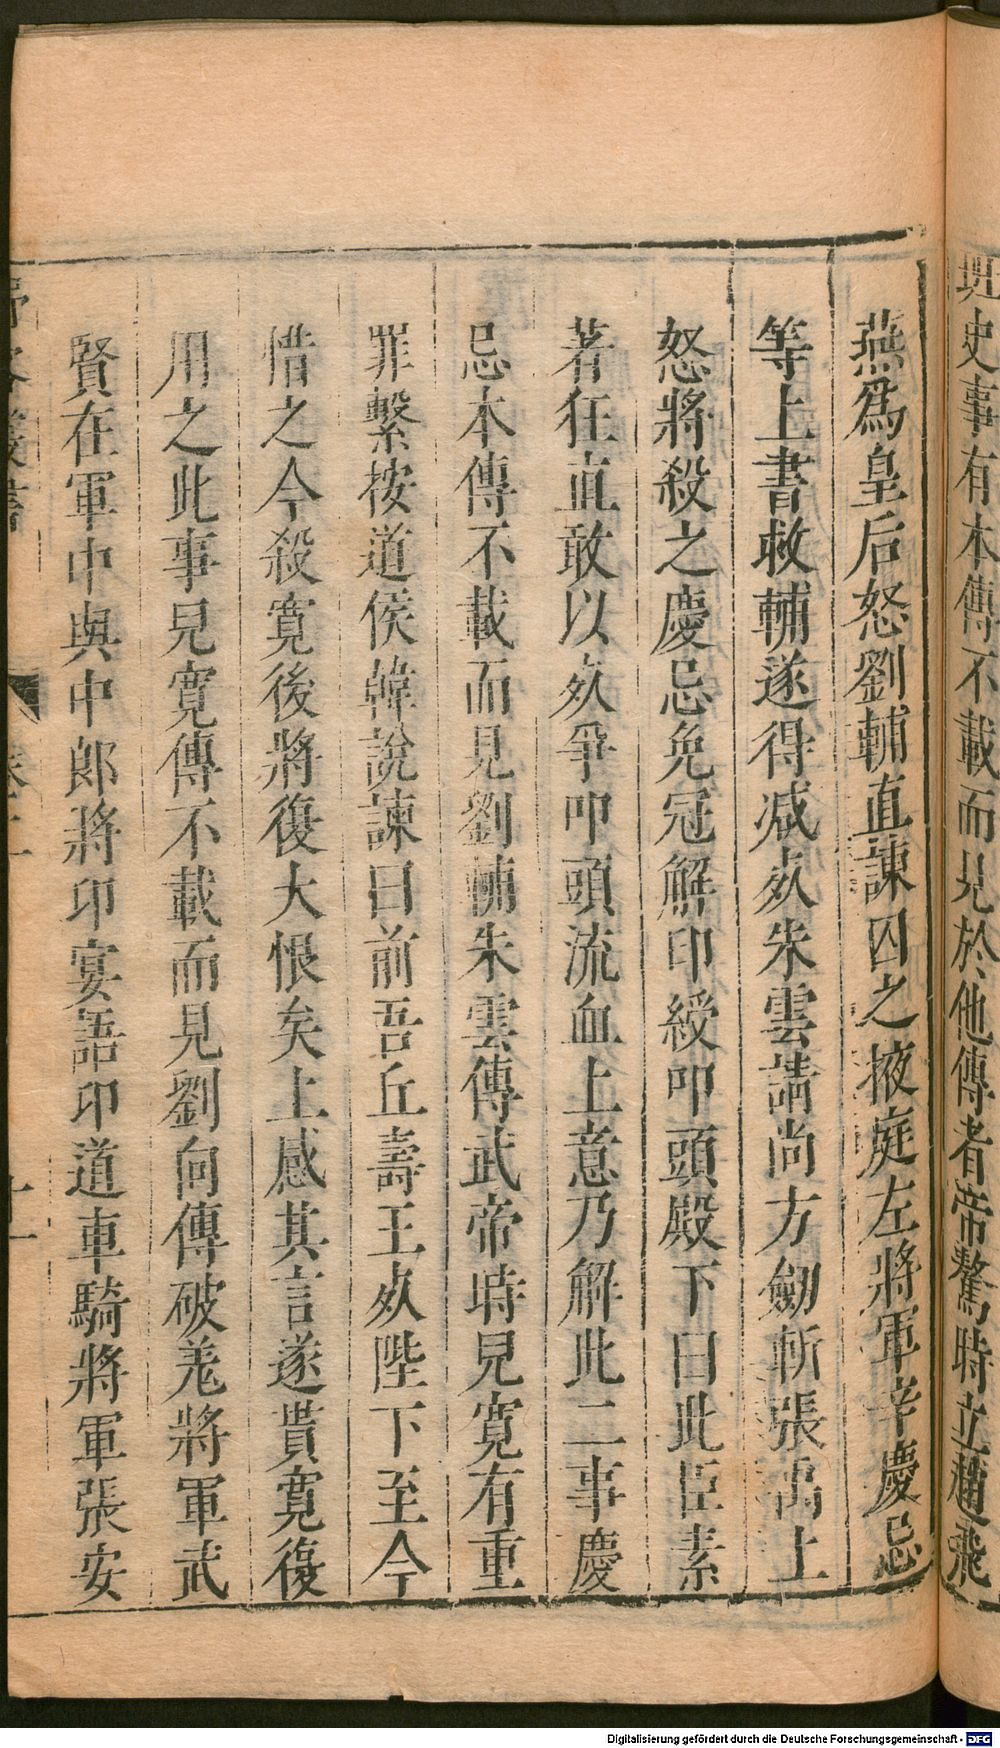 班史事有本傳不載而見於他傳者帝驁時立趙飛
燕爲皇后怒劉輔直諫囚之掖庭左將軍辛慶忌
等上書救輔遂得减㱙朱雲請尚方劒斬張禹上
怒將殺之慶忌免冠解印綬叩頭殿下曰此臣素
著狂直敢以㱙爭叩頭流血上意乃解此二事慶
忌本傳不載而見劉輔朱雲傳武帝時見寛有重
罪繫按道侯韓說諫曰前吾丘壽王㱙陛下至今
惜之今殺寛後將復大恨矣上感其言遂貰寛復
用之此事見寛傳不載而見劉向傳破羌將軍武
賢在軍中與中郞將卬宴語卬道車騎將軍張安
Digitalisierung gefördert durch die Deutsche Forschungsgemeinschaft - DFG